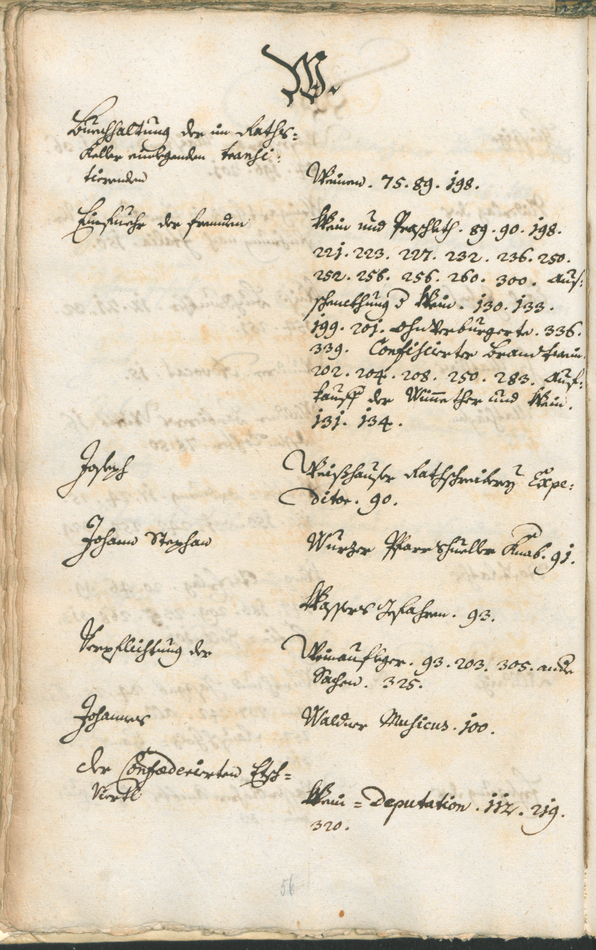 W.
Buechhaltung der im Raths=
Keller einlegenden transi=
tierenden
Weinen. 75. 89. 198.
Einfuehr der fremden
Wein und Praschlith. 89. 90. 198.
221. 223. 227. 232. 236. 250.
252. 256. 256. 260. 300. Aus=
schenckhung d Wein. 130. 133.
199. 201. ohnverburgerte. 336.
339. Confiscierter Brandtwein.
202. 204. 208. 250. 283. Auf=
kauff der und Wein.
131. 134.
Joseph
Weißhauser Rathschreiberey Expe=
ditor. 90.
Johann Stephan
Wurzer Pfarrschueller Knab. 91.
Wassers Gefahren. 93.
Verpflichtung der
Weinaufleger. 93. 203. 305. ande
Sachen. 325.
Johannes
Waldner Musicus. 100.
der Confoederierten Etsch=
Viertl
Wein=Deputation. 112. 219.
320.
56